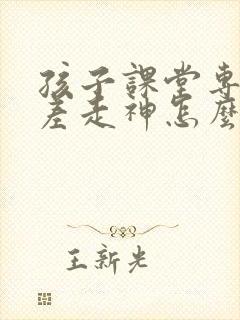 孩子課堂專
差走神怎麼
王新光